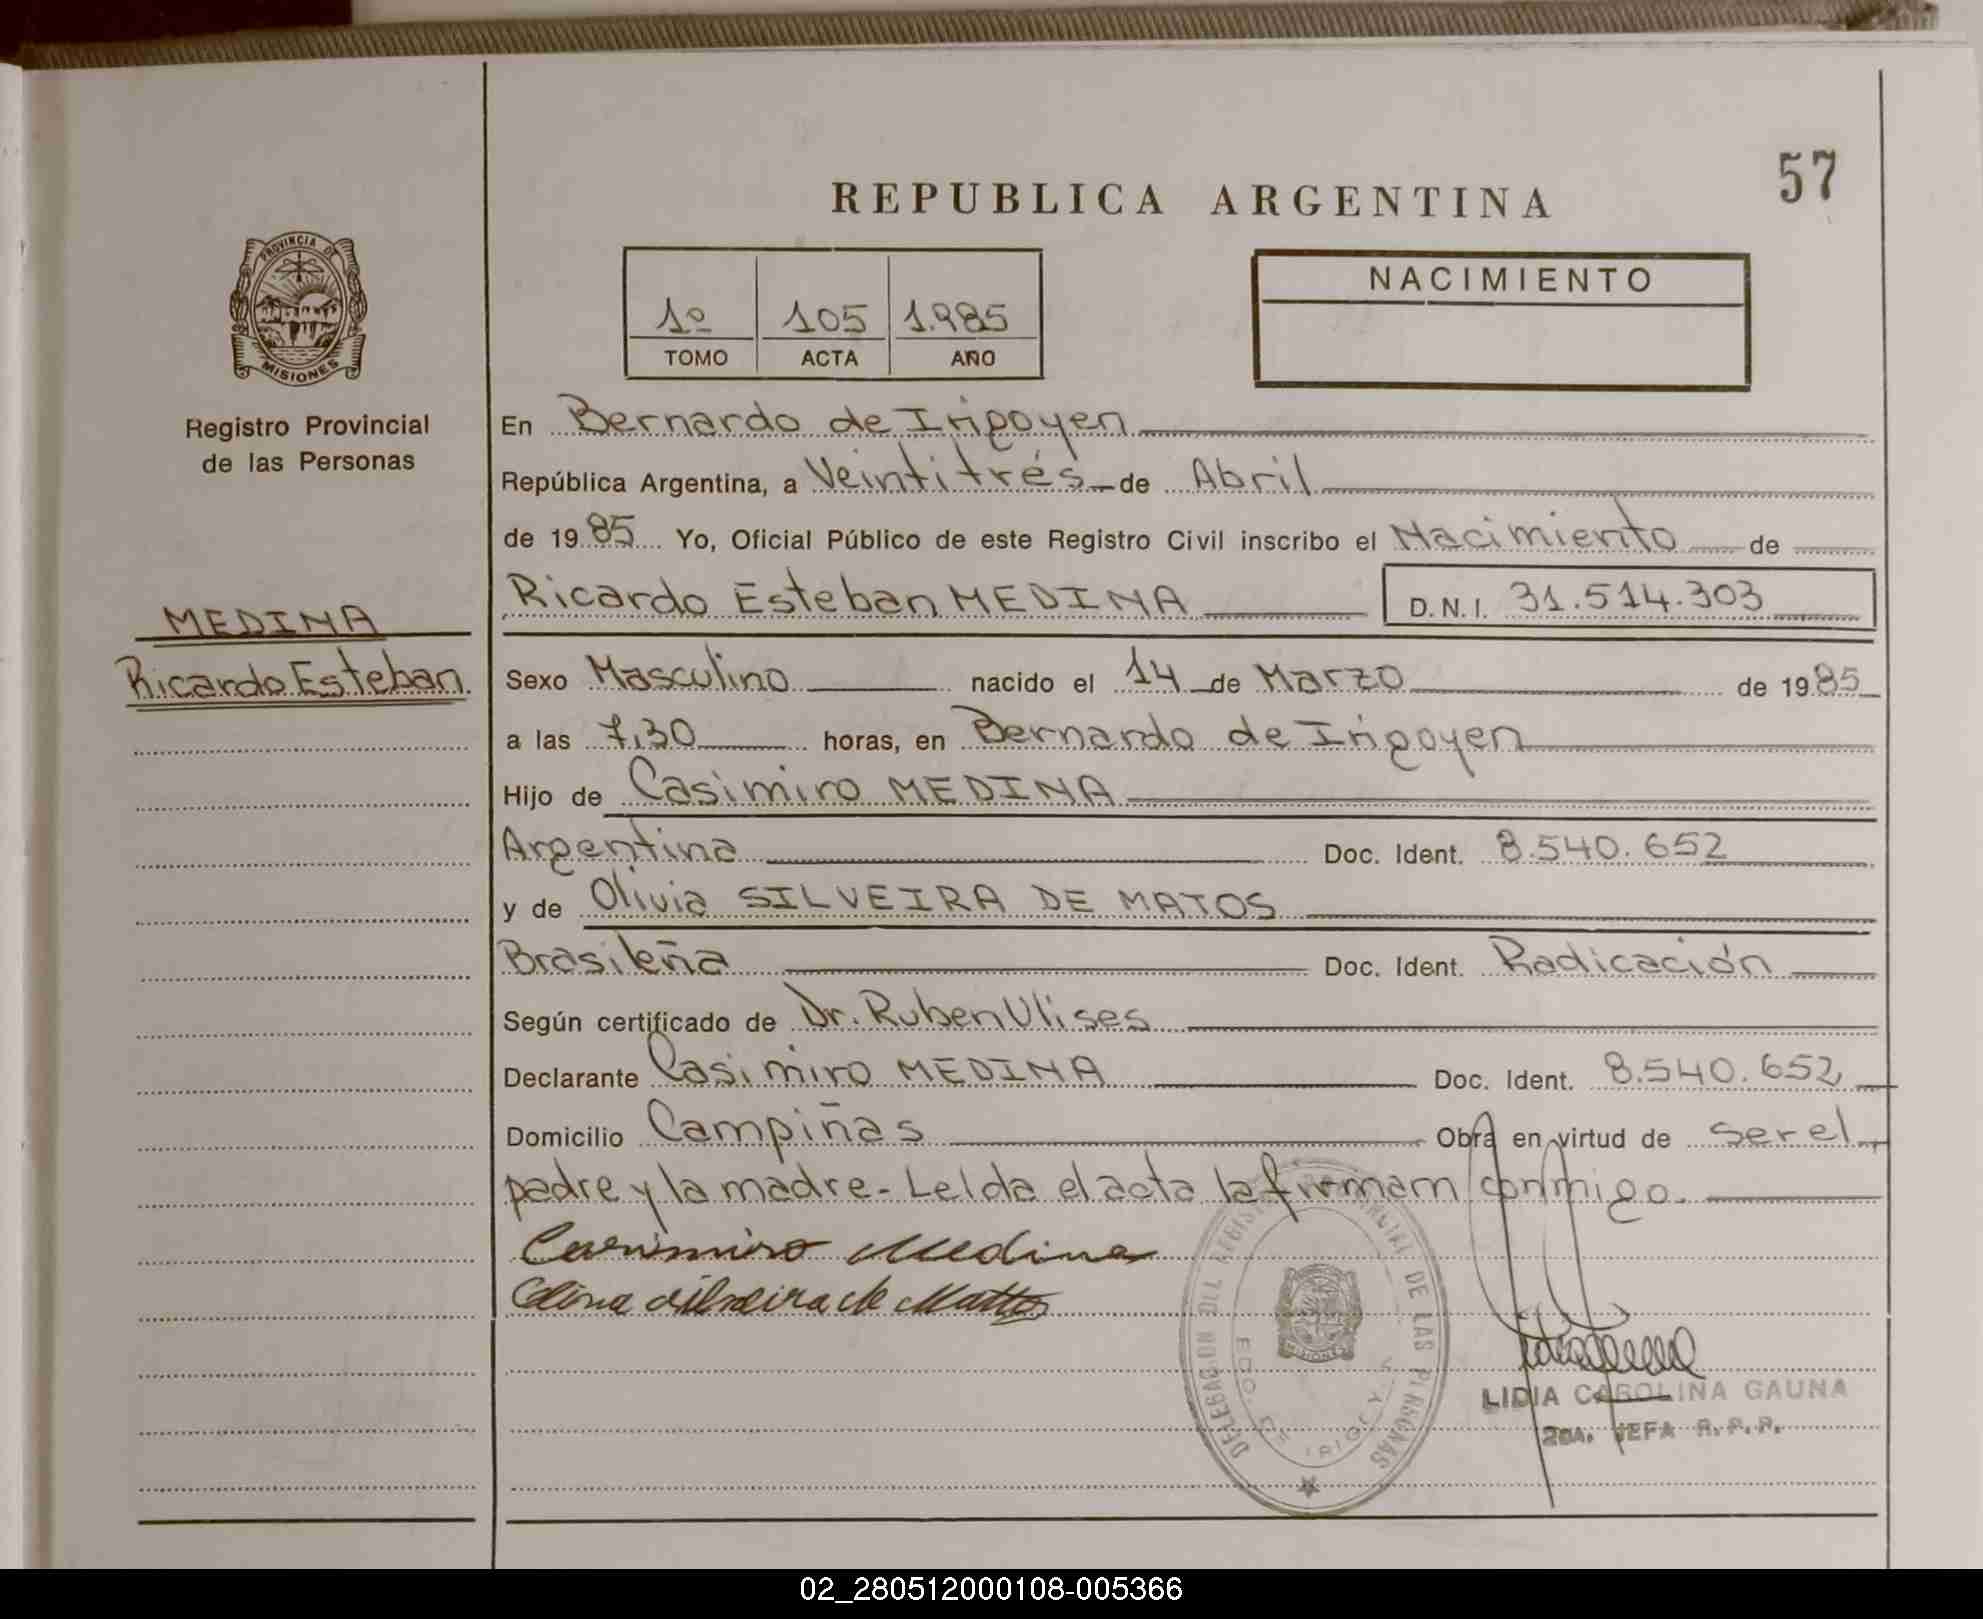 57
REPUBLICA ARGENTINA
PROVINCIA DE
MISIONES
Registro Provincial
de las Personas
1º 105 1.985
TOMO ACTA AÑO
NACIMIENTO
En Bernardo de Irigoyen
República Argentina, a Veintitrés de Abril
de 1985 Yo, Oficial Público de este Registro Civil inscribo el Nacimiento de
Ricardo Esteban MEDINA D.N.I. 31.514.303
MEDINA
Ricardo Esteban
Sexo Masculino nacido el 14 de Marzo de 1985
a las 7,30 horas, en Bernardo de Irigoyen
Hijo de Casimiro MEDINA
Argentina Doc. Ident. 8.540.652
y de Olivia SILVEIRA DE MATOS
Brasileña Doc. Ident. Radicación
Según certificado de Dr. Ruben Ulises
Declarante Casimiro MEDINA Doc. Ident. 8.540.652
Domicilio Campiñas Obra en virtud de ser el
padre y la madre.- Leída el acta la firmam conmigo.
Casimiro Medina
silveira de Mattos
DELEGACION DEL REGISTRO PROVINCIAL DE LAS PERSONAS
BDO. DE IRIGOYEN
MISIONES
LIDIA CAROLINA GAUNA
2DA. JEFA R.P.P.
02_280512000108-005366